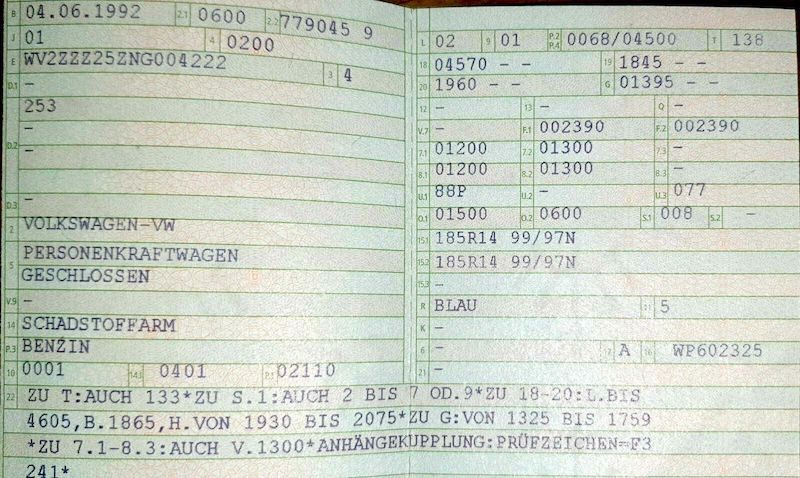 B 04.06.1992 2.1 0600 2.2 779045 9
J 01 4 0200
E WV2ZZZ25ZNG004222 3 4
D.1 –
253
–
D.2 –
D.3 –
2 VOLKSWAGEN-VW
5 PERSONENKRAFTWAGEN
GESCHLOSSEN
V.9 –
14 SCHADSTOFFARM
P.3 BENZIN
10 0001 14.1 0401 P.1 02110
L 02 9 01 P.2 P.4 0068/04500 T 138
18 04570 – – 19 1845 – –
20 1960 – – G 01395 – –
12 – 13 – Q –
V.7 – F.1 002390 F.2 002390
7.1 01200 7.2 01300 7.3 –
8.1 01200 8.2 01300 8.3 –
U.1 88P U.2 – U.3 077
O.1 01500 O.2 0600 S.1 008 S.2 –
15.1 185R14 99/97N
15.2 185R14 99/97N
15.3 –
R BLAU 11 5
K –
6 – 17 A 16 WP602325
21 –
22 ZU T:AUCH 133*ZU S.1:AUCH 2 BIS 7 OD.9*ZU 18-20:L.BIS
4605,B.1865,H.VON 1930 BIS 2075*ZU G:VON 1325 BIS 1759
*ZU 7.1-8.3:AUCH V.1300*ANHÄNGEKUPPLUNG:PRÜFZEICHEN=F3
241*